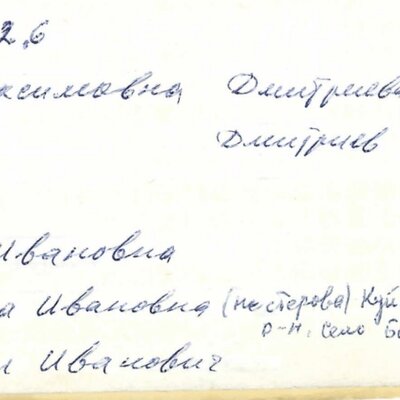 2.6
ксимовна Дмитриева
Дмитриев
Ивановна
а Ивановна (нестерова) Куй
р-н. село Бо
л Иванович